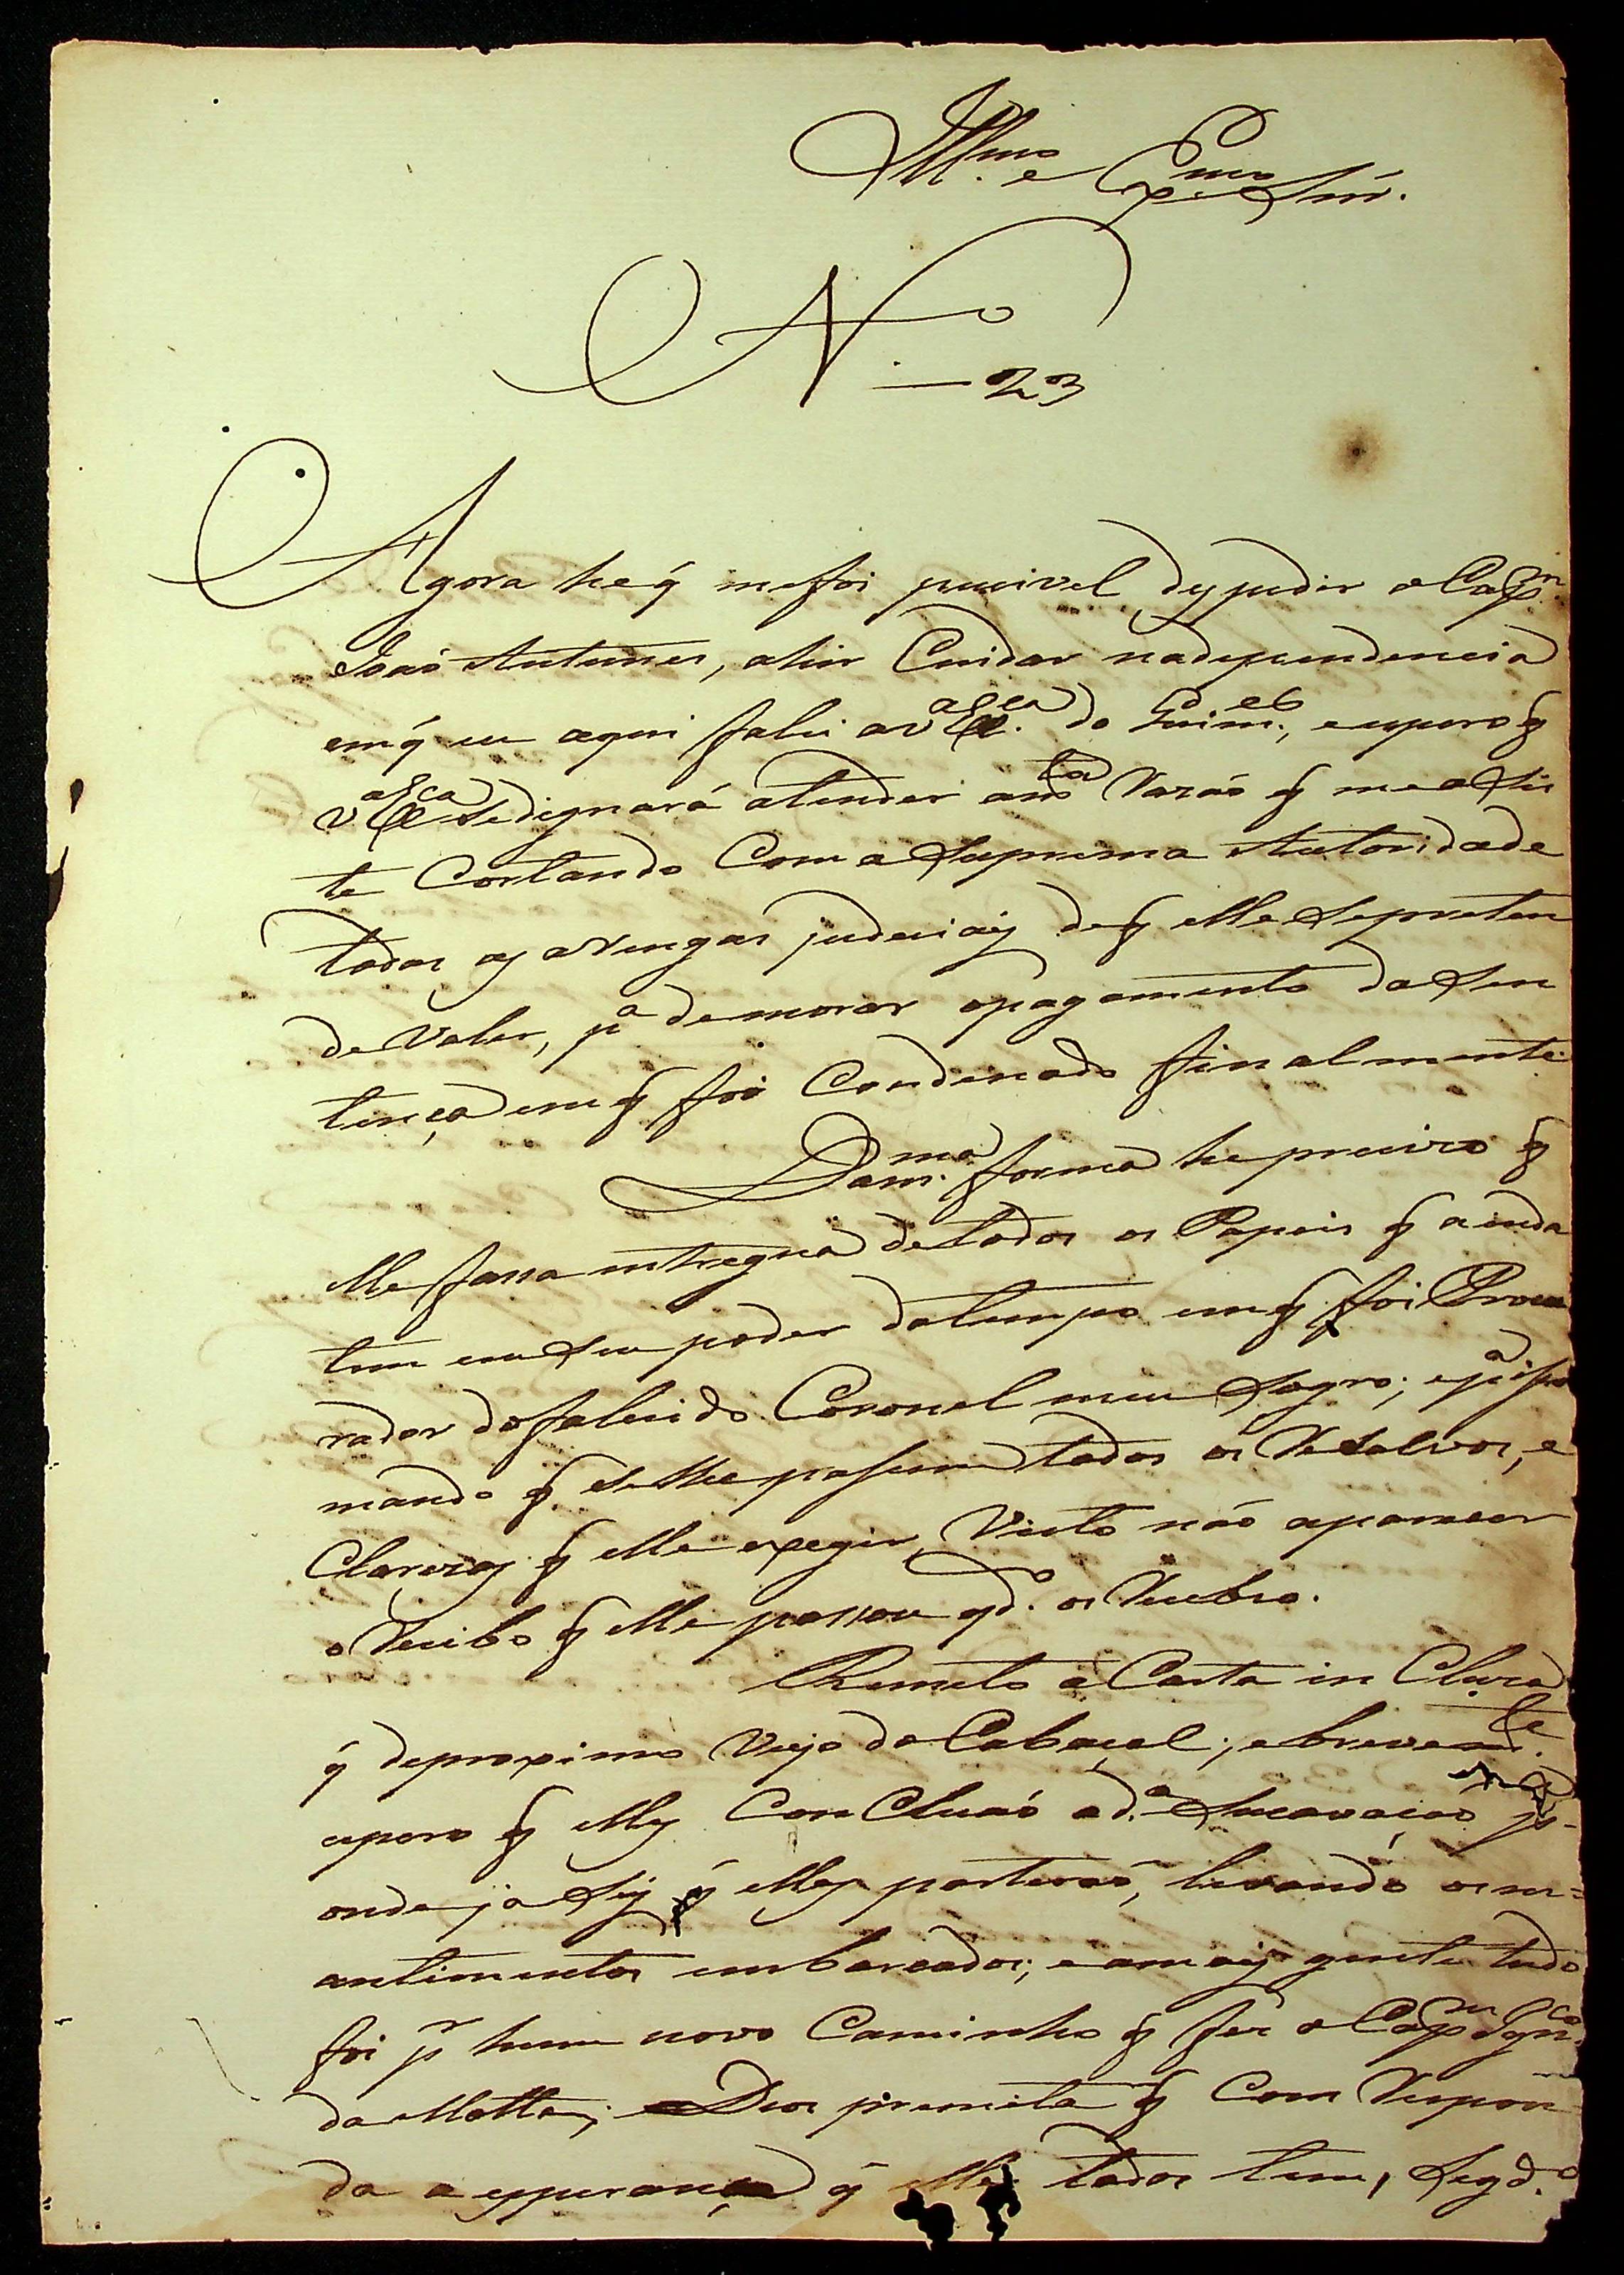 Ill.mo e Ex.mo Snr.
N.o — 23
Agora he q̃ me foi pucivel dispidir o Cap.m
João Antunes, ahir Cuidar nadependencia
emq̃ eu aqui falei a V Ex.a do e espero q̃
V Ex.a sedignará atender am.ta Razão q̃ me asis
te Cortando Com a Suprema Autoridade
todas as arengas judiciais deq̃ elle sepreten
de Valer, p.a demorar opagamento da Sen
tença emq̃ foi Condenado finalmente.
Dam.ma forma he preciso q̃
elle fassa entregua detodos os Papeis q̃ ainda
tem em Seu poder dotempo emq̃ foi Procu
rador dofalecido Coronel meu Sogro; ep.a isso
mando q̃ selhe passem todos os Resalvos, e
Clarezas q̃ elle exegir, Visto não aparecer
o Recibo q̃ elle passou qd.o os Recebeo.
Remeto a Carta in Cluza
q̃ deproximo Veyo do Cabaçal; ebrevem.te
espero q̃ elles ConCluão ad.a Sucavação p.a
onde ja Sei q̃ elles partirão, levando os m=
antimentos embarcados; eamais gente tudo
foi p.r hum novo Caminho q̃ fes o Cap.m Ign.co
da Motta; Deos premita q̃ Com Respon
da a esperança q̃ elles todos tem, Segd.o